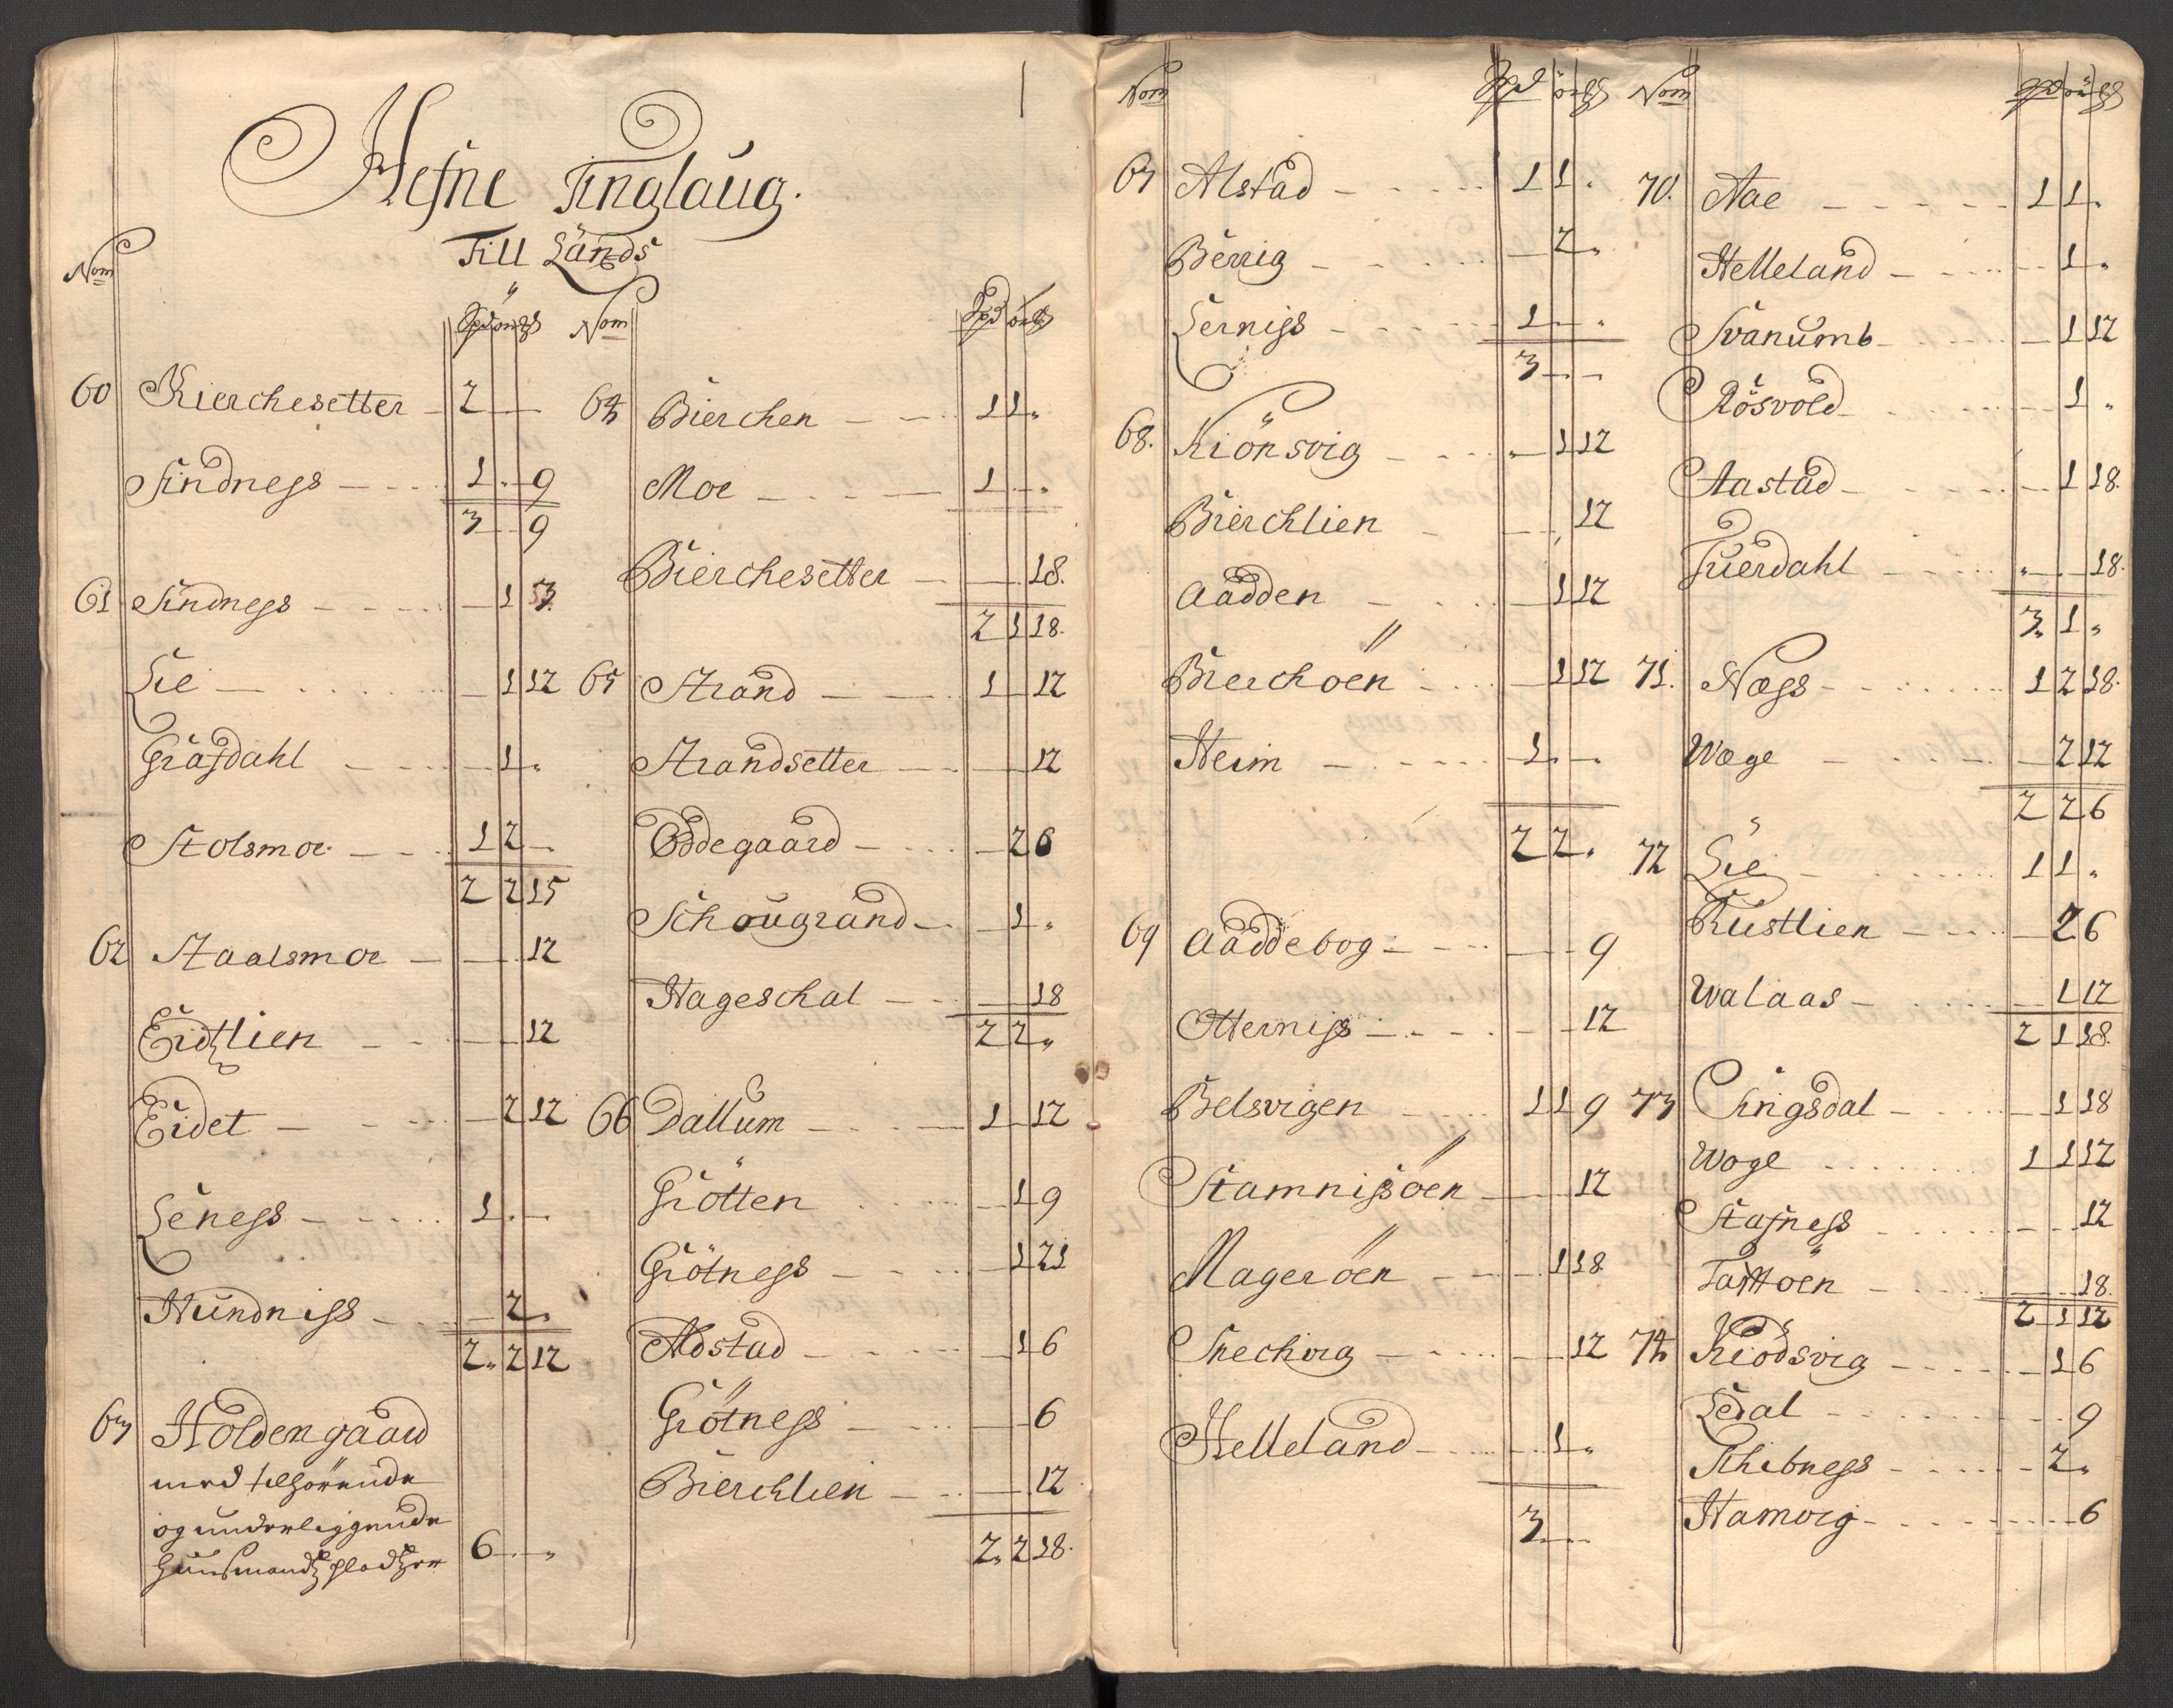 Hefne Tinglaug.
Till Lands
Nom
Spd ör mk Nom Spd ör mk
60 Kierchesetter 2
Sindness 1 9
3 9
61 Sindness 1 3
Lie 1 12
Grafdahl 1
Stolsmoe 1 2
2 2 15
62 Staalsmoe 12
Eidtzlien 12
Eidet 2 12
Leness 1
Hundniss 2
2 2 12
63 Holdengaard
med tilhörende
og underliggende
huusmandtz pladtzer 6
64 Bierchen 1 1
Moe 1
Bierchesetter 18
2 1 18
65 Strand 1 12
Strandsetter 12
Oddegaard 2 6
Schougrand 1
Hageschal 18
2 2
66 Dallum 1 12
Grötten 1 9
Grötness 1 21
Aldstad 1 6
Grötness 6
Bierchlien 12
2 2 18
Nom Spd ör mk Nom Spd ör mk
67 Alstad 1 1
Berrig 2
Lerniss 1
3
68. Kiönsvig 1 12
Bierchlien 12
Aadden 1 12
Bierchöen 1 12
Heim 1
2 2
69 Aaddebog 9
Otterniss 12
Belsvigen 1 1 9
Stamnissöen 12
Mageröen 1 18
Snechvig 12
Helleland 1
3
70. Aae 1 1
Helleland 1
Svanumb 1 12
Rösvold 1
Aastad 1 18
Tuerdahl 18
3 1
71. Næss 1 2 18
Wæge 2 12
2 2 6
72 Lie 1 1
Rustlien 2 6
Walaas 1 12
2 1 18
73 Singsdal 1 18
Woge 1 1 12
Stafness 12
Tafttöen 18
2 1 12
74 Kiodsvig 1 6
Ledal 9
Schibness 2
Hamvig 6